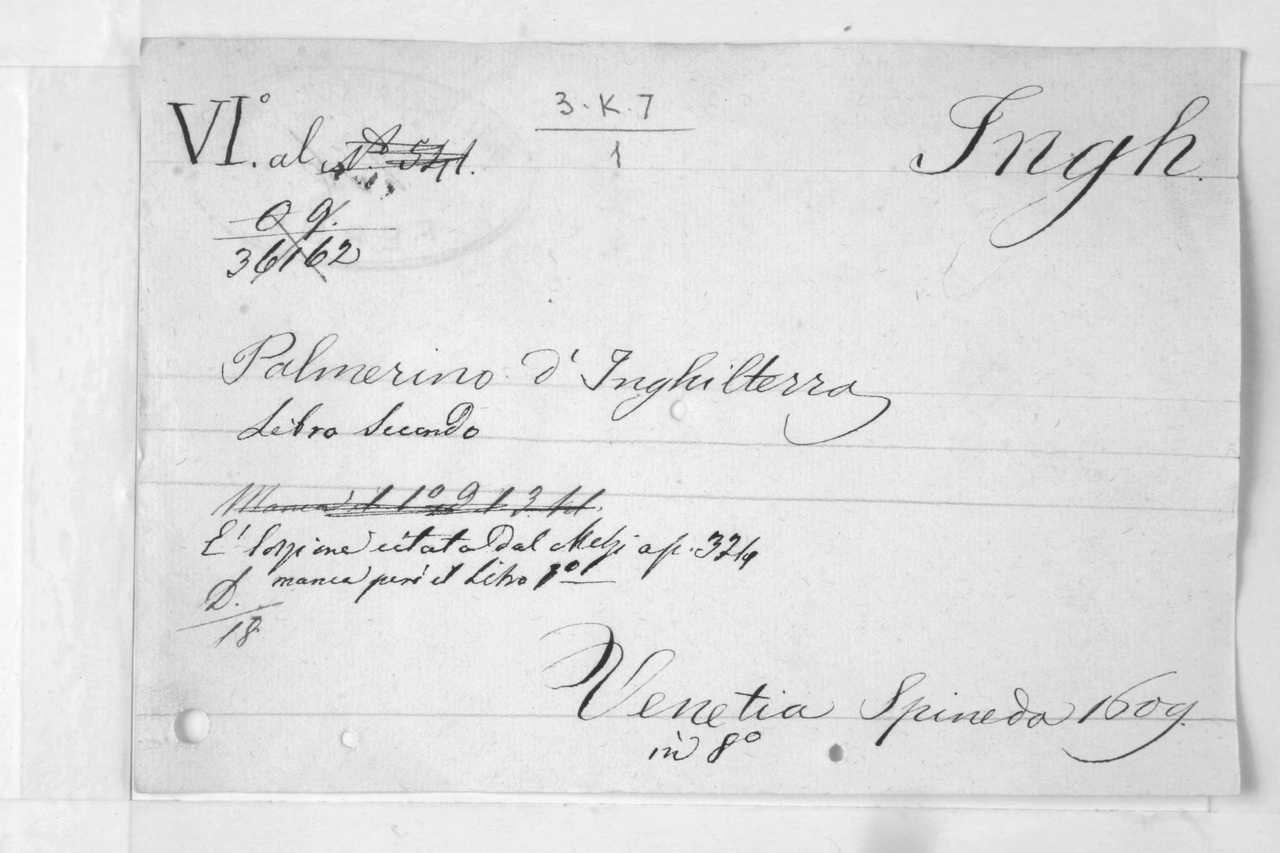 VI.° al N.° 541.
3.K.7
1
Ingh.
O g.
36162
Palmerino d'Inghilterra
Libro Secondo
Manca il 1°
E' citata dal Melzi a p. 324
manca però il Libro 1°
D.
18
Venetia Spineda 1609.
in 8°